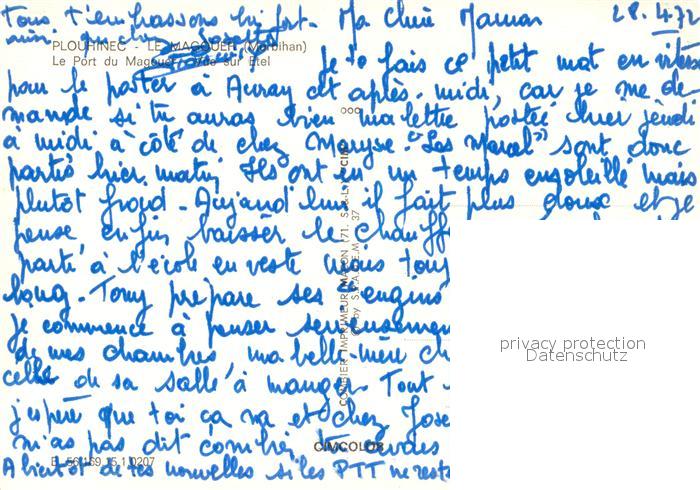 Tous t'embrassons bien fort. Ma Chère Maman 28.4.7
mimi
PLOUHINEC - LE MAGOUER (Morbihan)
Le Port du Magouer - Vue sur Etel
Je te fais ce petit mot en vitesse
pour le porter à Auray cet après-midi, car je me de-
mande si tu auras bien ma lettre postée hier jeudi
à midi à côté de chez Maryse. "Les Marcel" sont donc
partis hier matin. Ils ont eu un temps ensoleillé mais
plutôt froid - Aujourd'hui il fait plus doux et je
pense enfin baisser le chauff
parti à l'école en veste mais touj
long. Tony prépare ses "engins
je commence à penser serieusemen
de mes chambres, ma belle-mère ch
celle de sa salle à manger. Tout
j'espère que toi ça va et chez Jose
m'as pas dit combien tu devais
E 56.169.15.1.0207
CIMCOLOR
A bientôt de tes nouvelles si les PTT ne rest
COMBIER IMPRIMEUR MACON (71. S.-&-L.) "CIM"
privacy protection
Datenschutz